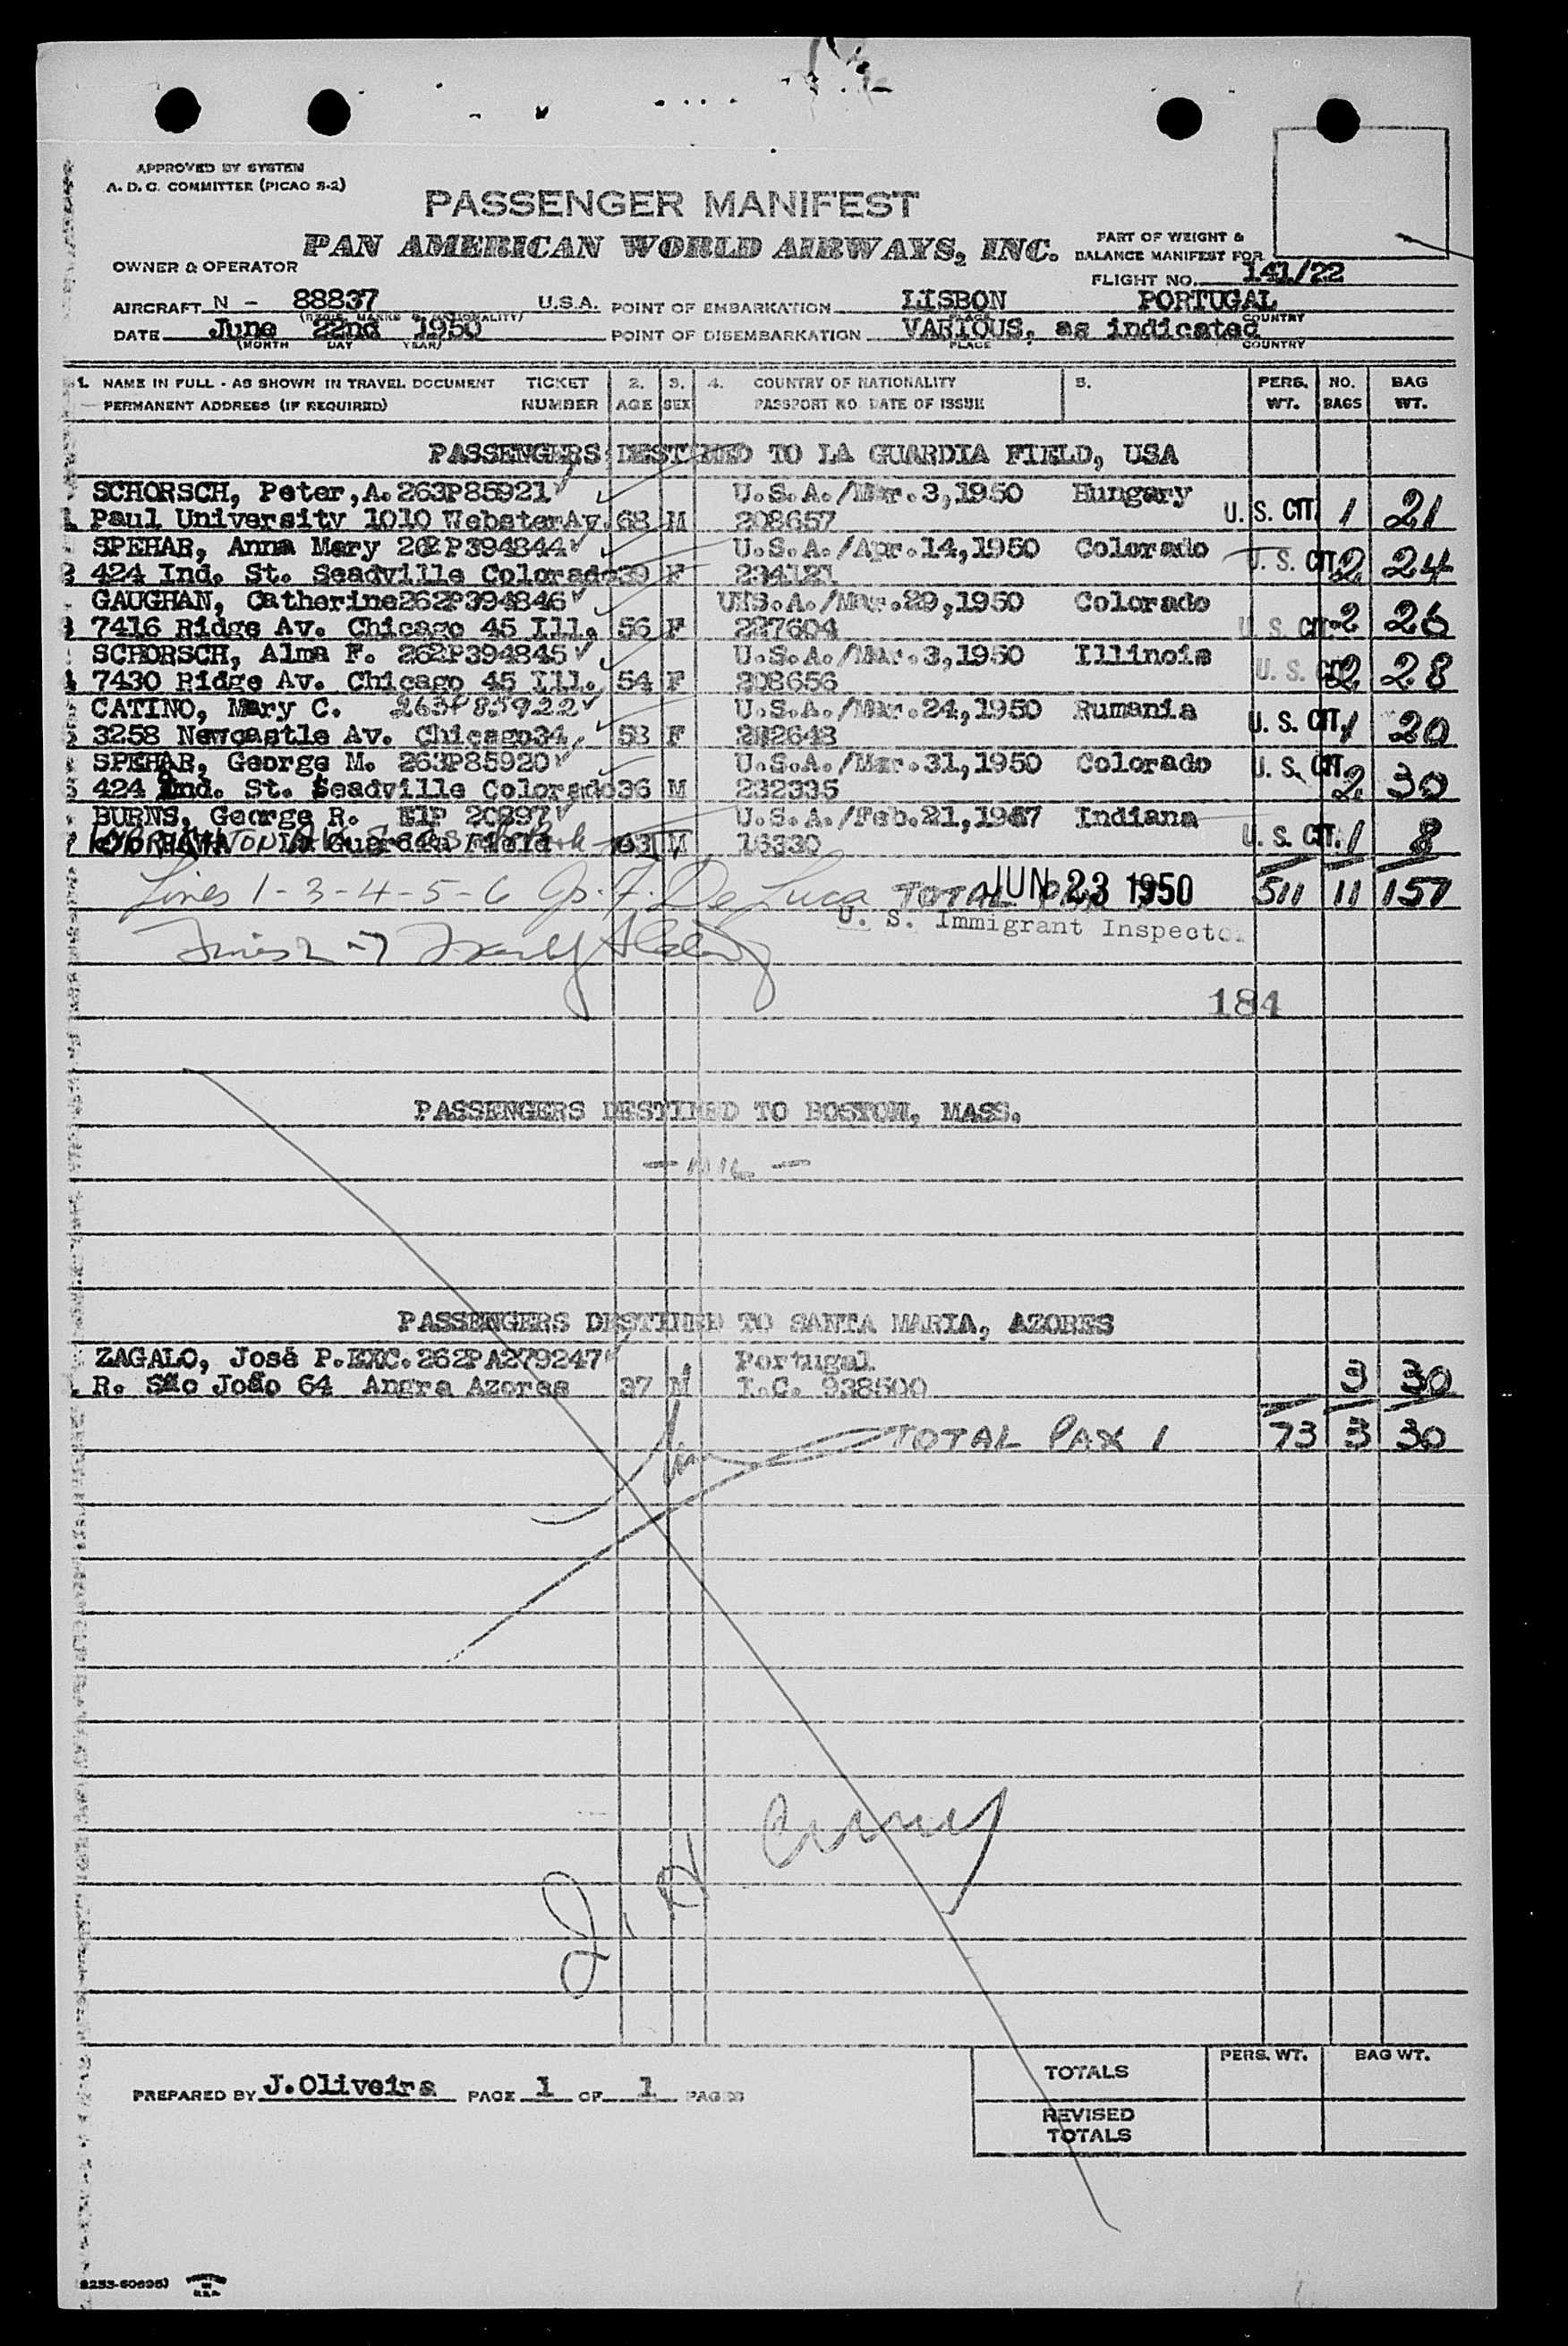 APPROVED BY SYSTEM
A. D. C. COMMITTEE (PICAO S-2)
PASSENGER MANIFEST
PAN AMERICAN WORLD AIRWAYS, INC.
PART OF WEIGHT &
BALANCE MANIFEST FOR
OWNER & OPERATOR
FLIGHT NO. 141/22
AIRCRAFT N - 88837 U.S.A. POINT OF EMBARKATION LISBON PORTUGAL
(REGIS. MARKS & NATIONALITY) PLACE COUNTRY
DATE June 22nd 1950 POINT OF DISEMBARKATION VARIOUS, as indicated
(MONTH DAY YEAR) PLACE COUNTRY
1. NAME IN FULL - AS SHOWN IN TRAVEL DOCUMENT TICKET 2. 3. 4. COUNTRY OF NATIONALITY 5. PERS. NO. BAG
PERMANENT ADDRESS (IF REQUIRED) NUMBER AGE SEX PASSPORT NO. DATE OF ISSUE WT. BAGS WT.
PASSENGERS DESTINED TO LA GUARDIA FIELD, USA
SCHORSCH, Peter,A. 263P85921 U.S.A./Mar.3,1950 Hungary
1 Paul University 1010 WebsterAv. 68 M 208657 U. S. CIT. 1 21
SPEHAR, Anna Mary 262P394844 U.S.A./Apr.14,1950 Colorado
2 424 Ind. St. Seadville Colorado 39 F 234121 U. S. CIT. 2 24
GAUGHAN, Catherine262P394846 U.S.A./Mar.29,1950 Colorado
3 7416 Ridge Av. Chicago 45 Ill. 56 F 227604 U. S. CIT. 2 26
SCHORSCH, Alma F. 262P394845 U.S.A./Mar.3,1950 Illinois
4 7430 Ridge Av. Chicago 45 Ill. 54 F 208656 U. S. CIT. 2 28
CATINO, Mary C. 263P85922 U.S.A./Mar.24,1950 Rumania
5 3258 Newcastle Av. Chicago34, 53 F 222648 U. S. CIT. 1 20
SPEHAR, George M. 263P85920 U.S.A./Mar.31,1950 Colorado
6 424 Ind. St. Seadville Colorado 36 M 232335 U. S. CIT. 2 30
BURNS, George R. E1P 20897 U.S.A./Feb.21,1947 Indiana
7 La Guardia Field 63 M 16330 U. S. CIT. 1 8
Lines 1-3-4-5-6 Jos. F. De Luca TOTAL PAX 7 JUN 23 1950 511 11 157
U. S. Immigrant Inspector
184
PASSENGERS DESTINED TO BOSTON, MASS.
- NIL -
PASSENGERS DESTINED TO SANTA MARIA, AZORES
ZAGALO, José P.EXC.262PA279247 Portugal
1 R. São João 64 Angra Azores 37 M I.C. 938500 3 30
TOTAL PAX 1 73 3 30
PERS. WT. BAG WT.
TOTALS
PREPARED BY J.Oliveira PAGE 1 OF 1 PAGES
REVISED
TOTALS
PRINTED
IN
U.S.A.